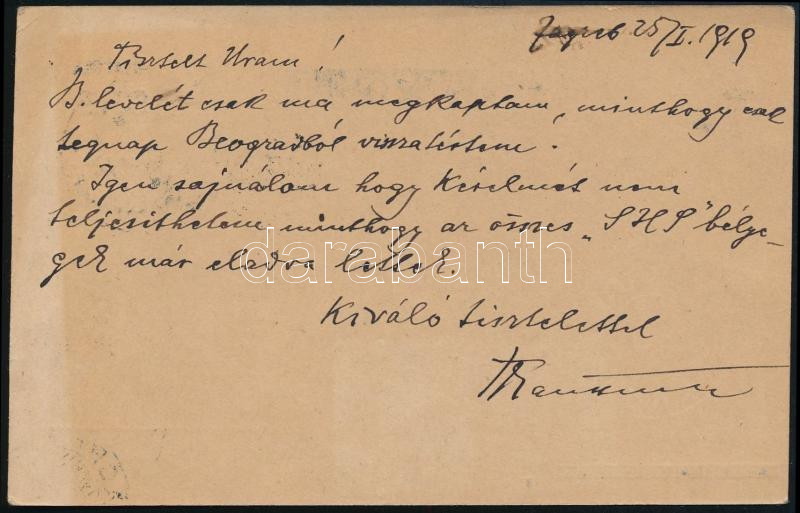 Zagreb 25/I. 1919
Tisztelt Uram!
B. levelét csak ma megkaptam, minthogy csak
tegnap Beogradból visszatértem.
Igen sajnálom hogy kérelmét nem
teljesithetem minthogy az összes „SHS" bélye-
gek már eladva lettek.
darabanth
Kiváló tisztelettel